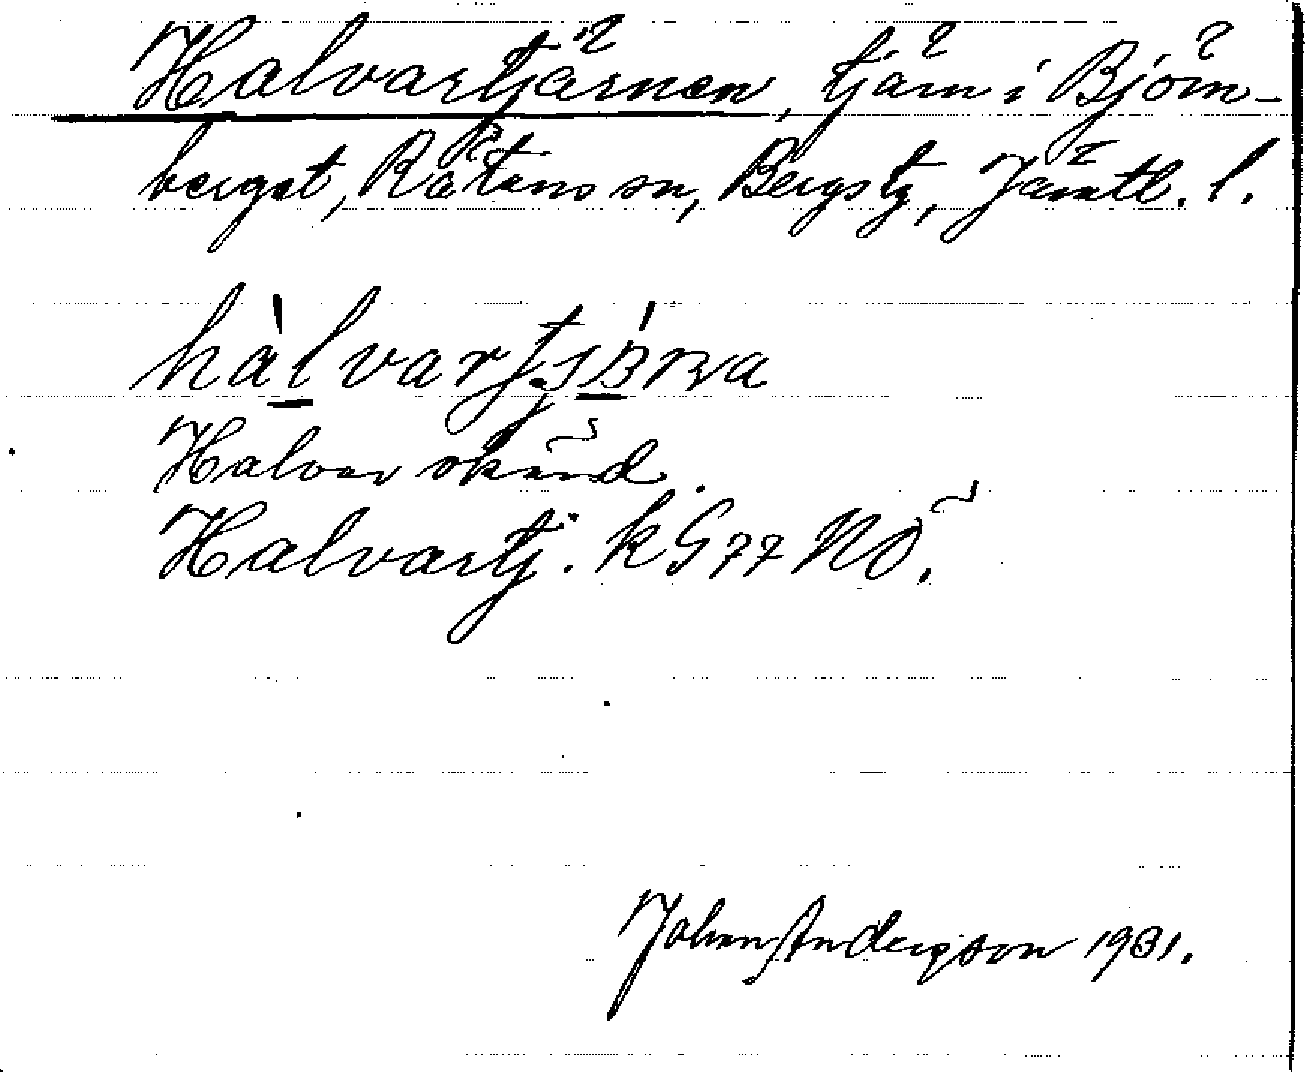 Halvartjärnen, tjärn i Björn-
berget, Rätans sn, Bergs tg, Jämtl. l.
Halvar okänd.
Halvartj. kG77 NÖ.
Johan Anderzson 1931.